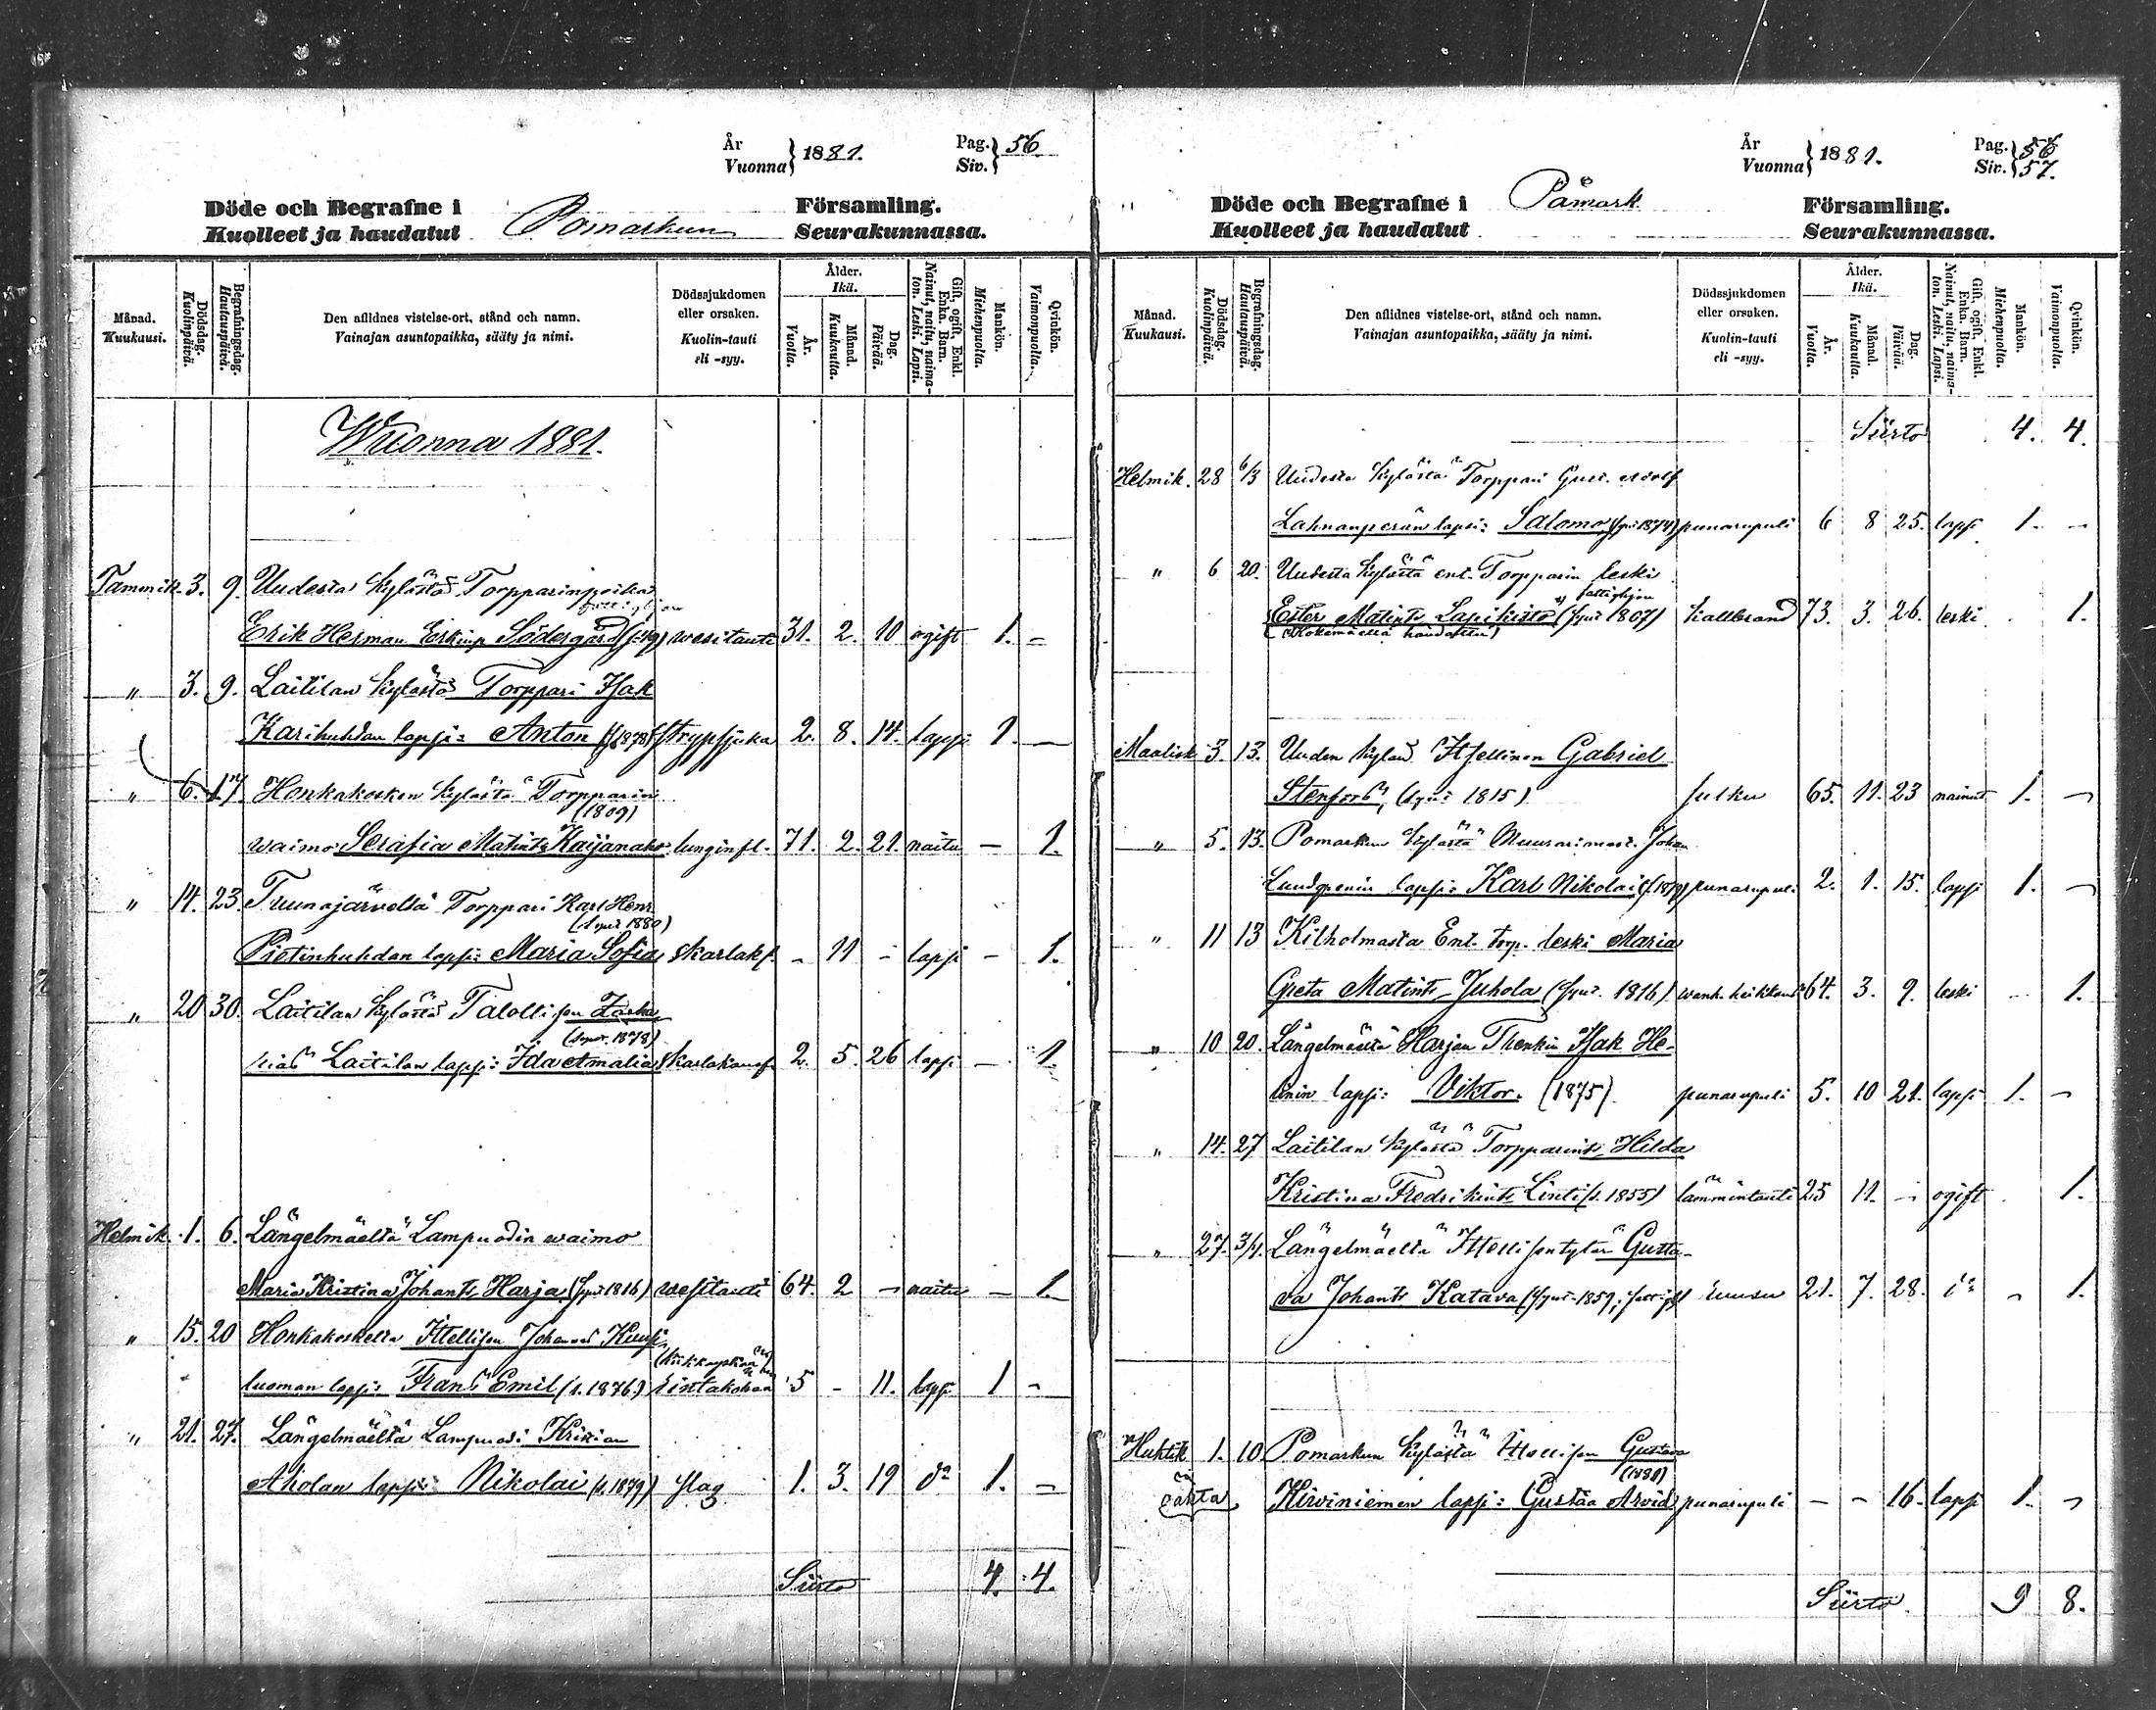 År Vuonna 1881. Pag. Siv. 56
Döde och Begrafne i Kuolleet ja haudatut Pomarkun Församling. Seurakunnassa.
Månad. Kuukausi. Dödsdag. Kuolinpäivä. Begrafningsdag. Hautauspäivä. Den aflidnes vistelse-ort, stånd och namn. Vainajan asuntopaikka, sääty ja nimi. Dödssjukdomen eller orsaken. Kuolin-tauti eli -syy. Ålder. Ikä. År. Vuotta. Månad. Kuukautta. Dag. Päivää. Gift, ogift, Enkl. Enka. Barn. Nainut, naitu, naimaton. Leski. Lapsi. Mankön. Miehenpuolta. Qvinkön. Vaimonpuolta.
Wuonna 1881.
Tammik. 3. 9. Uudesta Kylästä Torpparinpoika
Erik Herman Erkinp. Södergård wesitauti 31. 2. 10 ogift 1. -
" 3. 9. Laitilan kylästä Torppari Isak
Karihuhdan lapsi: Anton (s. 1878) strypsjuka 2. 8. 14. lapsi 1. -
" 6. 17. Honkakosken kylästä Torpparin
(1809)
waimo Serafia Matint. Kaijanaho lunginfl. 71. 2. 21. naitu - 1.
" 14. 23. Tuunajärveltä Torppari Karl Henr.
(synt 1880)
Pistinhuhdan lapsi: Maria Sofia skarlakf. - 11 - lapsi - 1.
" 20 30. Laitilan kylästä Talollisen Zacha-
(synt. 1878)
rias Laitilan lapsi: Ida Amalia skarlakansf. 2. 5. 26 lapsi - 1.
Helmik. 1. 6. Längelmäeltä Lampuodin waimo
Maria Kristina Johant. Harja (synt 1816) wesitauti 64. 2 - naitu - 1.
" 15. 20 Honkakoskelta Itsellisen Johannes Kuusi-
luoman lapsi: Frans Emil (s. 1876) rintakohaa 5 - 11. lapsi 1 -
" 21. 27. Längelmäeltä Lampuodi Kristian
Aholan lapsi: Nikolai (s. 1879) slag 1. 3. 19 do 1. -
Siirto 4. 4.
År Vuonna 1881. Pag. Siv. 56 57.
Döde och Begrafne i Kuolleet ja haudatut Påmark Församling. Seurakunnassa.
Månad. Kuukausi. Dödsdag. Kuolinpäivä. Begrafningsdag. Hautauspäivä. Den aflidnes vistelse-ort, stånd och namn. Vainajan asuntopaikka, sääty ja nimi. Dödssjukdomen eller orsaken. Kuolin-tauti eli -syy. Ålder. Ikä. År. Vuotta. Månad. Kuukautta. Dag. Päivää. Gift, ogift, Enkl. Enka. Barn. Nainut, naitu, naimaton. Leski. Lapsi. Mankön. Miehenpuolta. Qvinkön. Vaimonpuolta.
Siirto 4. 4.
Helmik. 28 6/3 Uudesta Kylästä Torppari Gust. Adolf
Lahnanperän lapsi: Salomo (synt 1874) punarupuli 6 8 25. lapsi 1. -
" 6 20. Uudesta Kylästä ent. Torpparin leski
fattighjon
Ester Matint. (synt 1807) kallbrand 73. 3. 26. leski . 1.
(Kokemäellä haudattu)
Maalisk. 3. 13. Uuden kylän Itsellinen Gabriel
Stenfors, (synt 1815) 65. 11. 23 nainut 1. -
" 5. 13. Pomarkun kylästä Muurarimest. Johan
Lundgrenin lapsi: Karl Nikolai (s. 1879) punarupuli 2. 1. 15. lapsi 1. -
" 11 13 Kilholmasta Ent. torp. leski Maria
Greta Matint. Juhola (synt. 1816) wanh. heikkous 64. 3. 9. leski - 1.
" 10 20. Längelmäeltä Harjan Trenkin Isak He-
linin lapsi: Viktor. (1875) punarupuli 5. 10 21. lapsi 1. -
" 14. 27 Laitilan kylästä Torpparint. Hilda
Kristina Fredrikint. Linti (s. 1855) lämmintauti 25 11. - ogift . 1.
" 27. 3/4. Längelmäeltä Itsellisen tytär Gusta-
va Johant. Katava (synt. 1859; 21. 7. 28. do - 1.
Huhtik. 1. 10 Pomarkun kylästä Itsellisen Gustava
(1881)
Kirviniemen lapsi: Gustaa Arvid punarupuli - - 16. lapsi 1. -
Siirto 9 8.